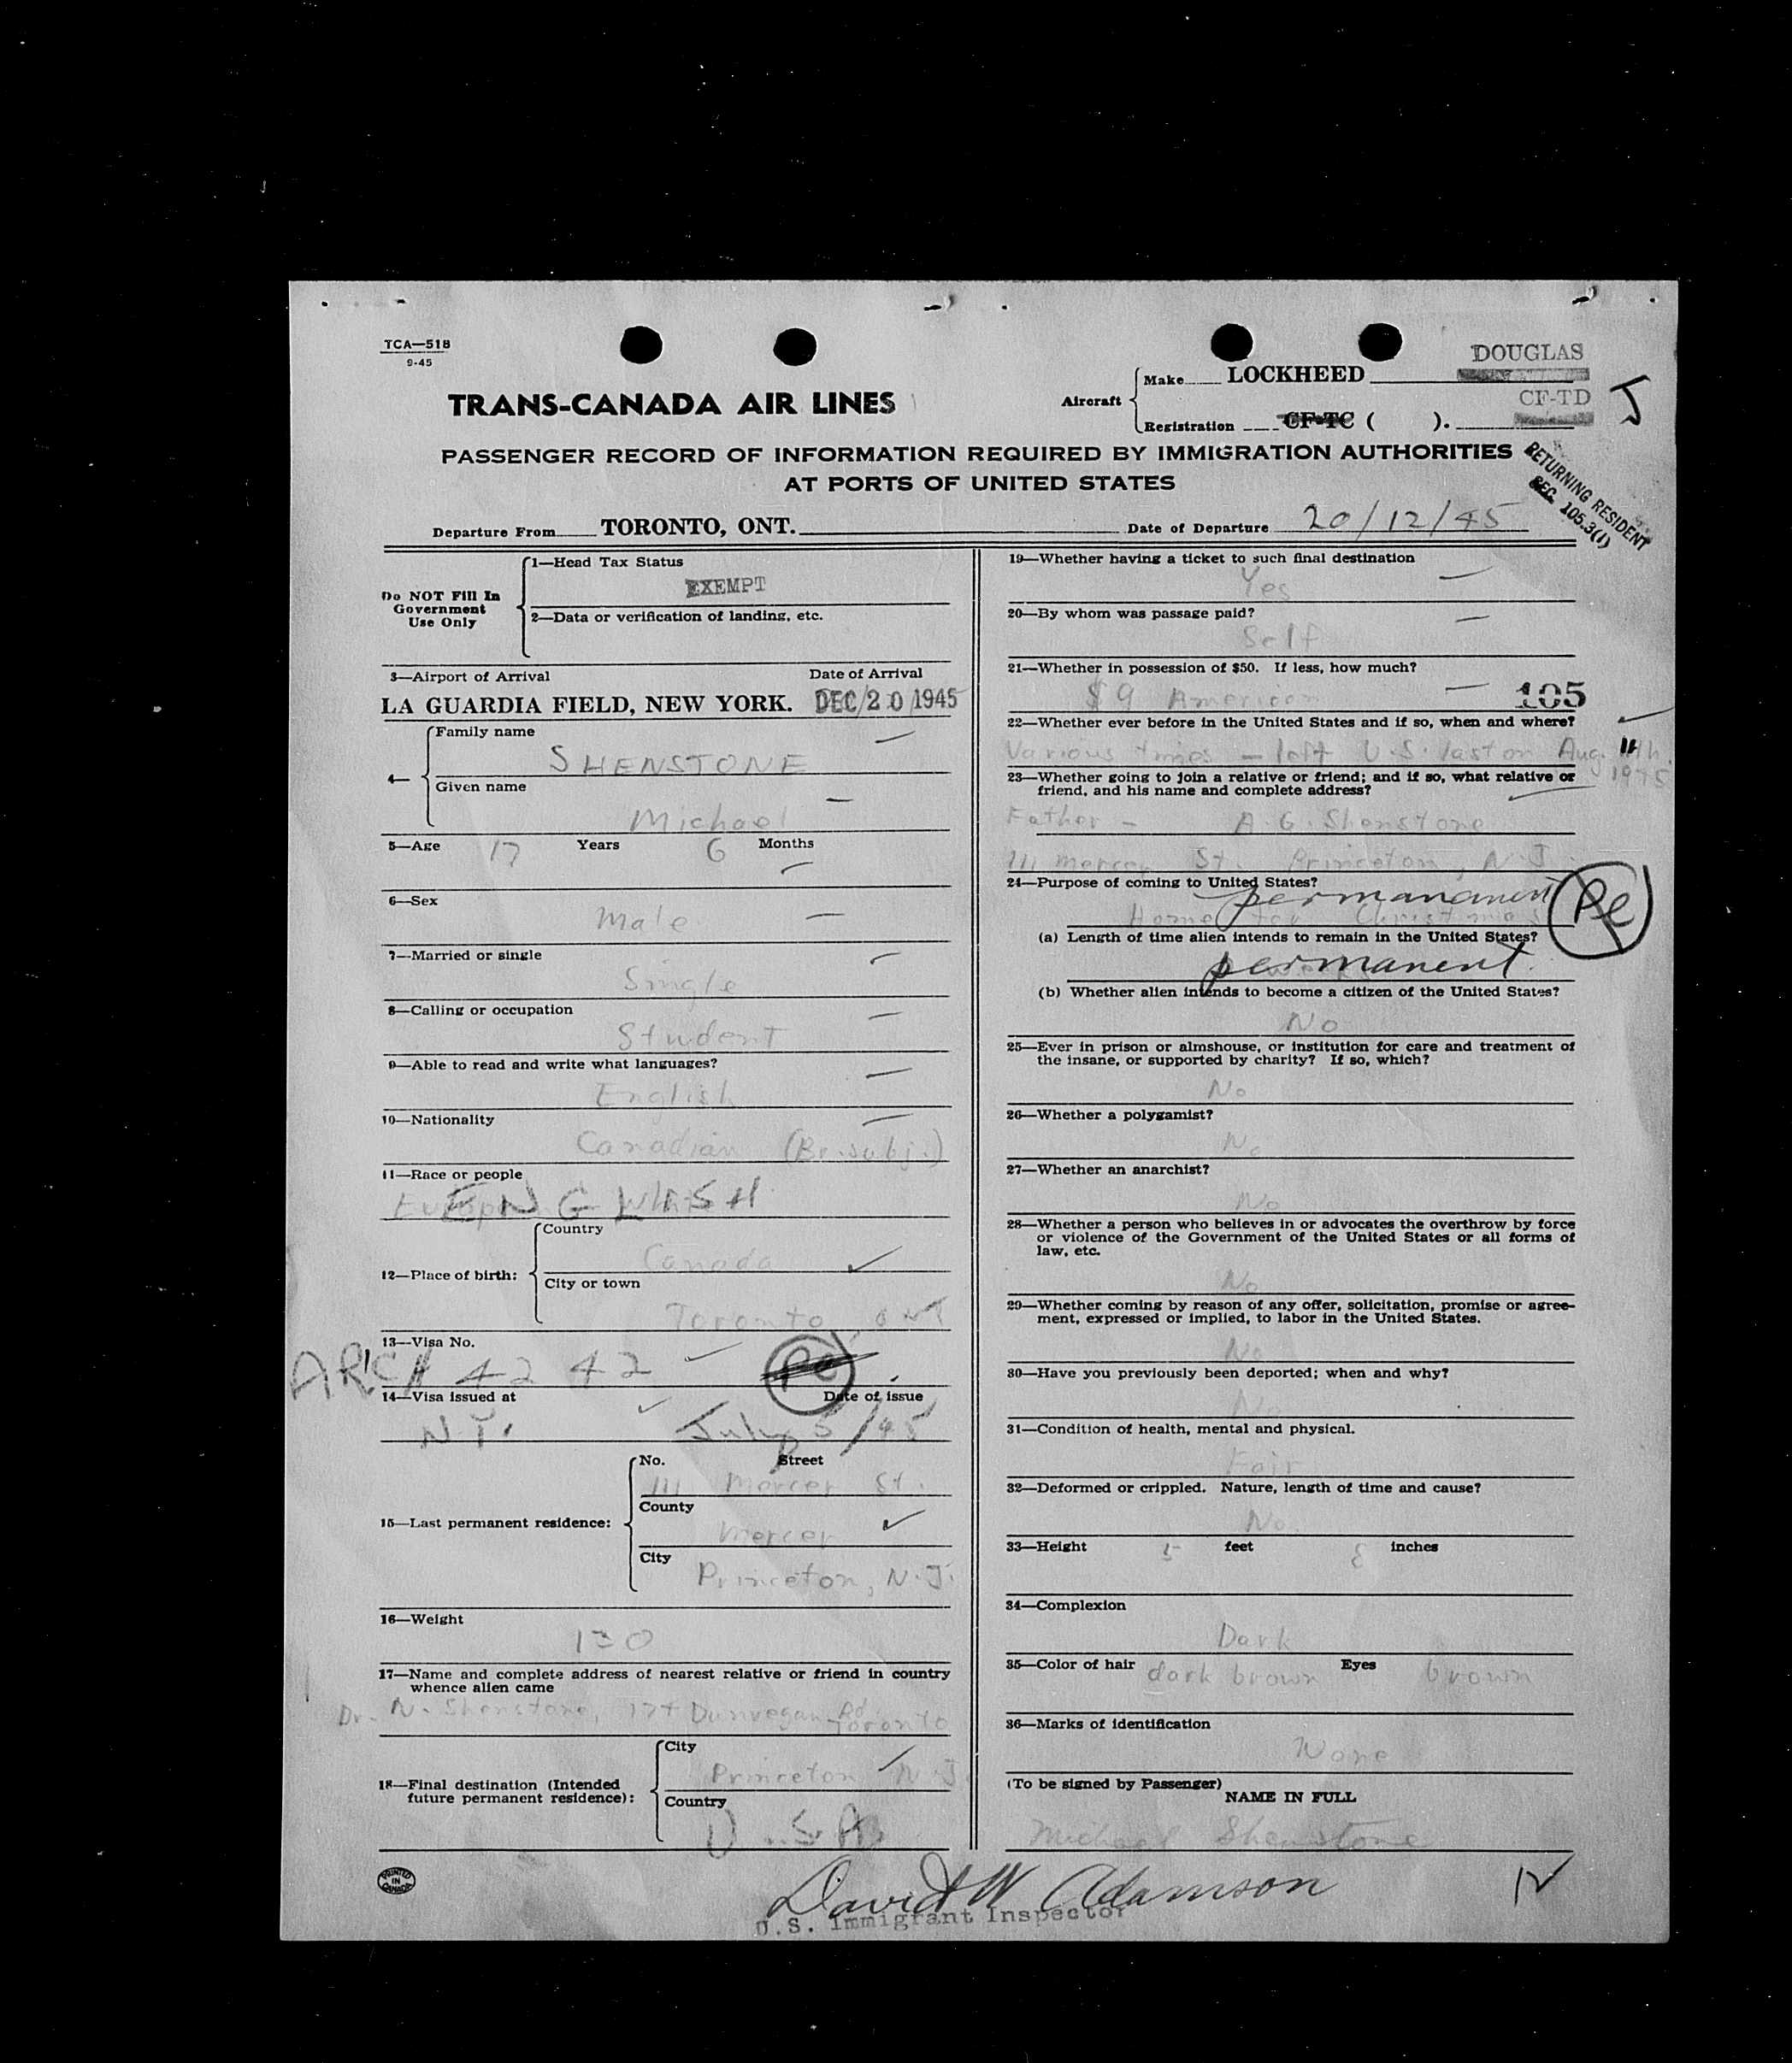 TCA—518
9-45
DOUGLAS
Make LOCKHEED
TRANS-CANADA AIR LINES
Aircraft
CF-TD
Registration CF-TC ( ).
J
PASSENGER RECORD OF INFORMATION REQUIRED BY IMMIGRATION AUTHORITIES
AT PORTS OF UNITED STATES
RETURNING RESIDENT
SEC. 105.3(1)
Departure From TORONTO, ONT. Date of Departure 20/12/45
Do NOT Fill In
Government
Use Only
1—Head Tax Status
EXEMPT
2—Data or verification of landing, etc.
3—Airport of Arrival Date of Arrival
LA GUARDIA FIELD, NEW YORK. DEC 20 1945
4—
Family name
SHENSTONE
Given name
Michael
5—Age 17 Years 6 Months
6—Sex
Male
7—Married or single
Single
8—Calling or occupation
Student
9—Able to read and write what languages?
English
10—Nationality
Canadian (Br. subj.)
11—Race or people
ENGLISH
12—Place of birth:
Country
Canada
City or town
Toronto, ONT
13—Visa No.
4242
14—Visa issued at Date of issue
N.Y. July 5/45
15—Last permanent residence:
No. Street
111 Mercer St.
County
Mercer
City
Princeton, N.J.
16—Weight
130
17—Name and complete address of nearest relative or friend in country
whence alien came
Dr. N. Shenstone, Dunvegan Rd
Toronto
18—Final destination (Intended
future permanent residence):
City
Princeton N.J.
Country
U.S.A.
PRINTED
IN
CANADA
19—Whether having a ticket to such final destination
Yes
20—By whom was passage paid?
Self
21—Whether in possession of $50. If less, how much?
$9 American 105
22—Whether ever before in the United States and if so, when and where?
Various times — left U.S. last on Aug. 11th
1945
23—Whether going to join a relative or friend; and if so, what relative or
friend, and his name and complete address?
Father — A. G. Shenstone
111 Mercer St. Princeton, N.J.
24—Purpose of coming to United States?
permanament
Home for Christmas
Pe
(a) Length of time alien intends to remain in the United States?
permanent.
(b) Whether alien intends to become a citizen of the United States?
No
25—Ever in prison or almshouse, or institution for care and treatment of
the insane, or supported by charity? If so, which?
No
26—Whether a polygamist?
No
27—Whether an anarchist?
No
28—Whether a person who believes in or advocates the overthrow by force
or violence of the Government of the United States or all forms of
law, etc.
No
29—Whether coming by reason of any offer, solicitation, promise or agree-
ment, expressed or implied, to labor in the United States.
No
30—Have you previously been deported; when and why?
No
31—Condition of health, mental and physical.
Fair
32—Deformed or crippled. Nature, length of time and cause?
No
33—Height 5 feet 8 inches
34—Complexion
Dark
35—Color of hair dark brown Eyes brown
36—Marks of identification
None
(To be signed by Passenger)
NAME IN FULL
Michael Shenstone
David W Adamson
U.S. Immigrant Inspector